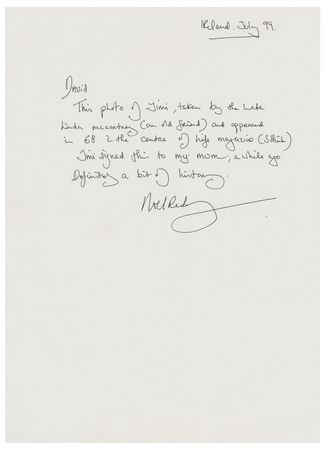 Ireland. July 99.
David
This photo of Jimi, taken by the late
Linda McCartney (an old friend) and appeared
in 68 in the centre of life magazine (I think)
Jimi signed this to my mom, a while ago
Definitely a bit of history.
Noel Redding